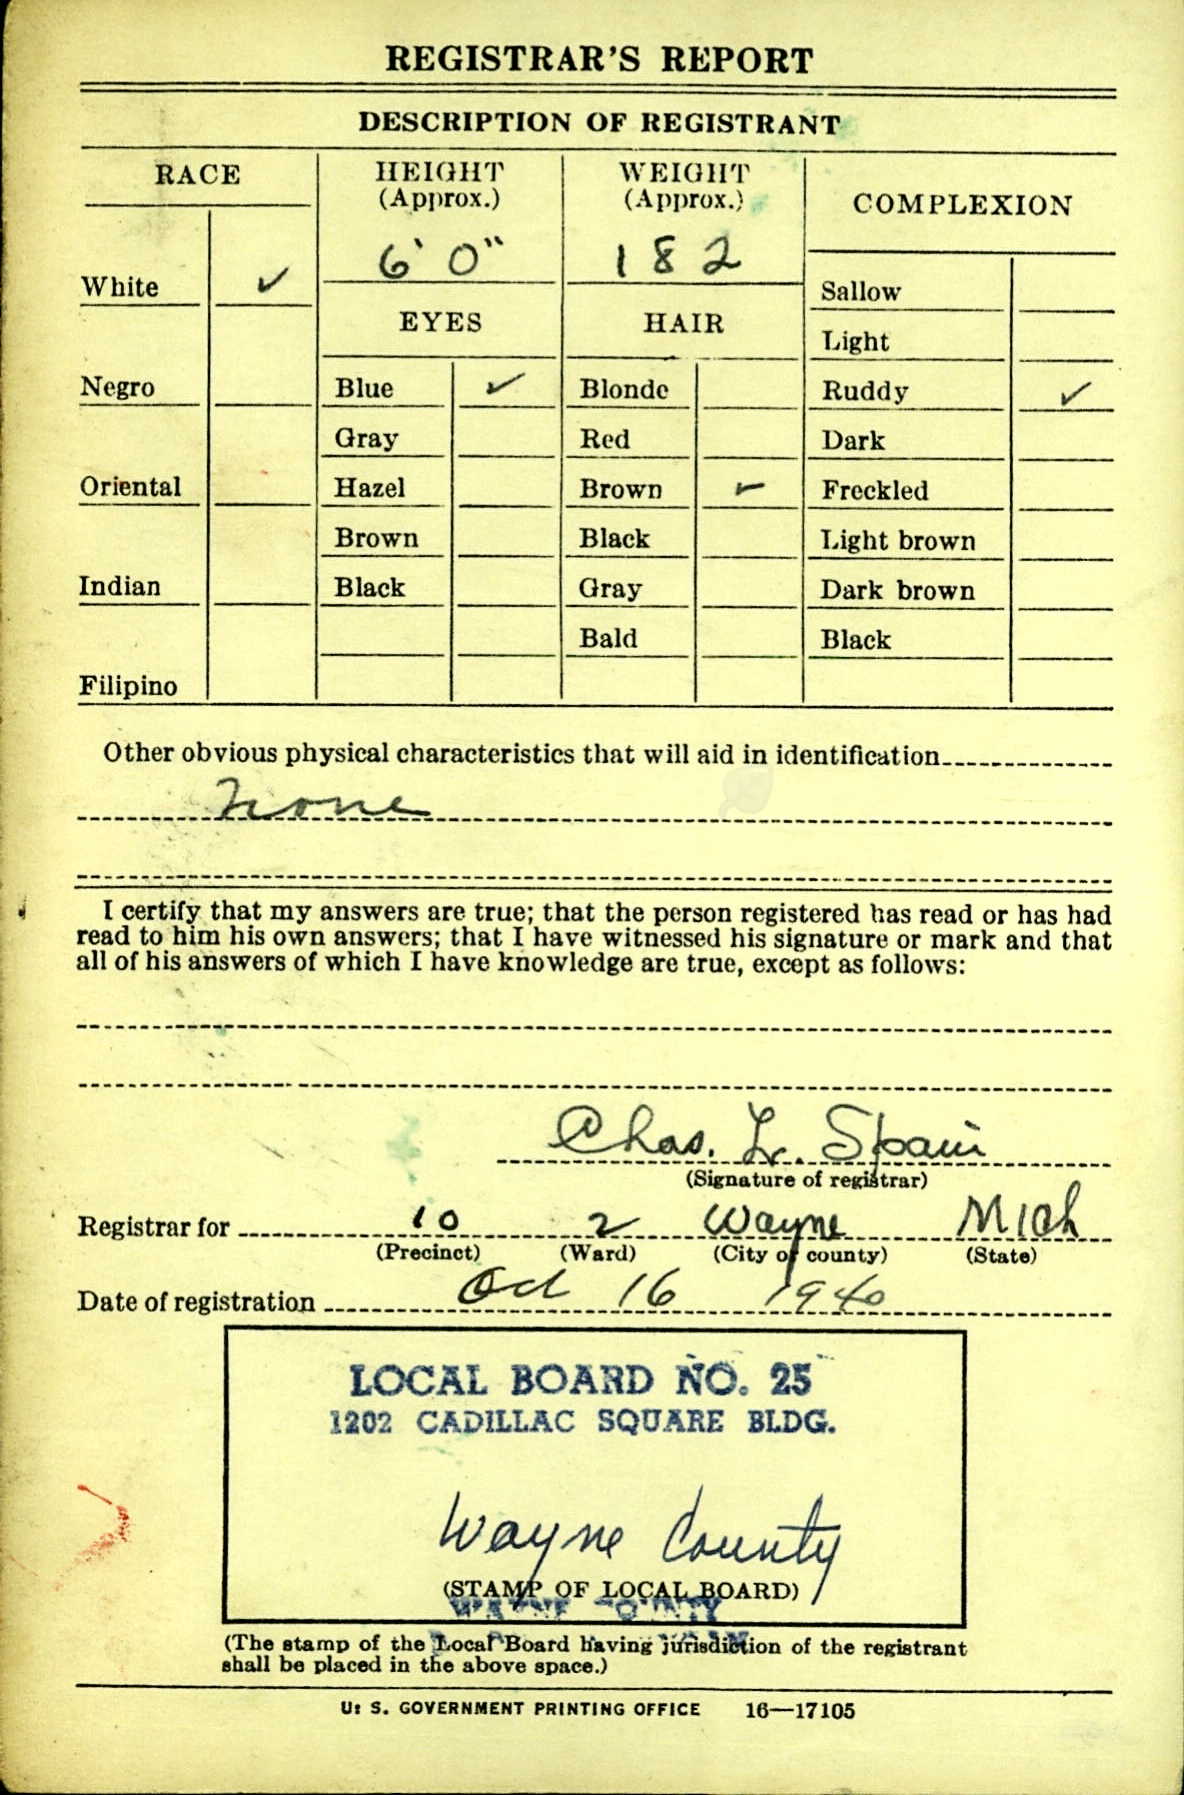 REGISTRAR'S REPORT
DESCRIPTION OF REGISTRANT
RACE
HEIGHT
(Approx.)
WEIGHT
(Approx.)
COMPLEXION
6' 0"
182
White ✓
EYES
HAIR
Sallow
Light
Negro
Blue ✓
Blonde
Ruddy ✓
Gray
Red
Dark
Oriental
Hazel
Brown ✓
Freckled
Brown
Black
Light brown
Indian
Black
Gray
Dark brown
Bald
Black
Filipino
Other obvious physical characteristics that will aid in identification
None
I certify that my answers are true; that the person registered has read or has had
read to him his own answers; that I have witnessed his signature or mark and that
all of his answers of which I have knowledge are true, except as follows:
Chas. L. Spain
(Signature of registrar)
Registrar for 10 2 Wayne Mich
(Precinct) (Ward) (City or county) (State)
Date of registration Oct 16 1940
LOCAL BOARD NO. 25
1202 CADILLAC SQUARE BLDG.
Wayne County
(STAMP OF LOCAL BOARD)
WAYNE COUNTY
(The stamp of the Local Board having jurisdiction of the registrant
shall be placed in the above space.)
U. S. GOVERNMENT PRINTING OFFICE 16—17105